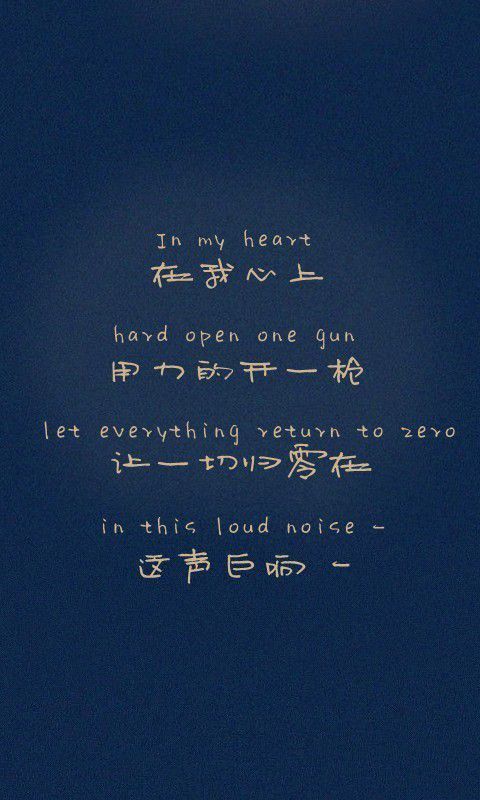 In my heart
在我心上
hard open one gun
用力的开一枪
let everything return to zero
让一切归零在
in this loud noise -
这声巨响 -